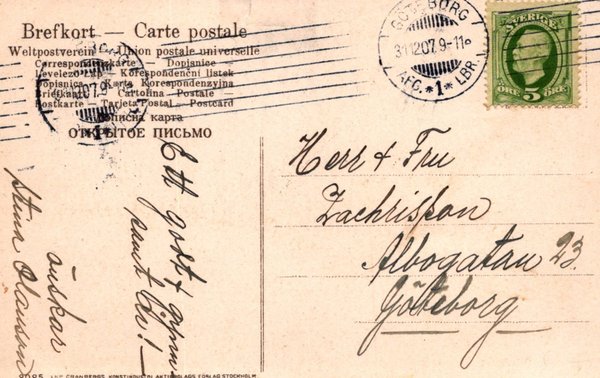 Brefkort — Carte postale
Weltpostverein — Union postale universelle
Correspondenzkarte — Dopisnice
Levelező-Lap — Korespondenční lístek
Dopisnica — Karta Korespondenzyjna
Briefkaart — Cartolina - Postale
Postkarte — Tarjeta Postal — Postcard
ОТКРЫТОЕ ПИСЬМО
GÖTEBORG
31 12 07. 9-11
AFG. *1* LBR.
SVERIGE
ÖRE 5 ÖRE
Ett godt
samt
önskar
Stina Olausson
Herr & Fru
Zachrisson
Albogatan 23.
Göteborg
GRANBERGS KONSTINDUSTRI AKTIEBOLAGS FÖRLAG STOCKHOLM